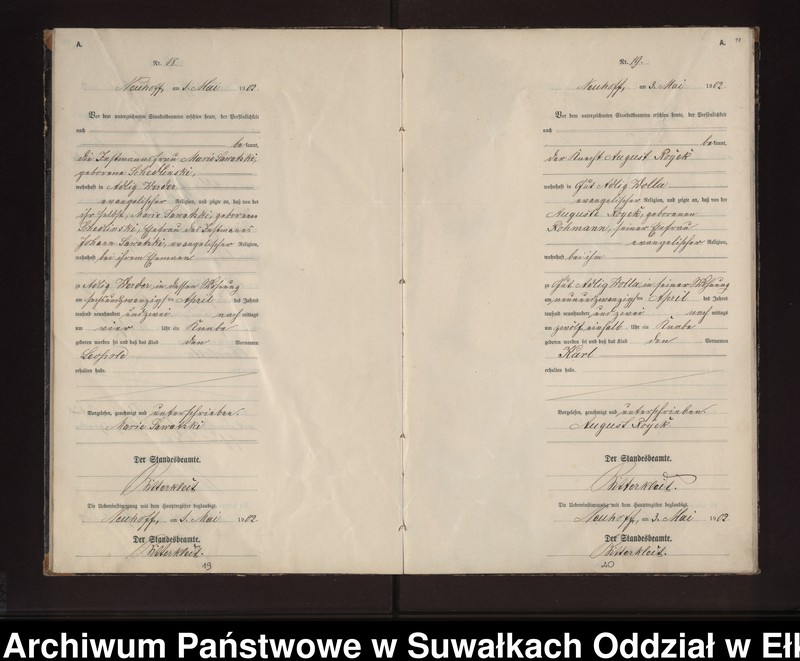 A.
Nr. 18.
Neuhoff, am 1. Mai 1902
Vor dem unterzeichneten Standesbeamten erschien heute, der Persönlichkeit
nach
bekannt,
die Instmannsfrau Marie Sawatzki,
geborene Schedlinski,
wohnhaft in Adlig Werder
evangelischer Religion, und zeigte an, daß von
ihr selbst, Marie Sawatzki, geborenen
Schedlinski, Ehefrau des Instmanns
Johann Sawatzki, evangelischer Religion,
wohnhaft bei ihrem Ehemann
zu Adlig Werder in dessen Wohnung
am sechsundzwanzigsten April des Jahres
tausend neunhundert und zwei nachmittags
um vier Uhr ein Knabe
geboren worden sei und daß das Kind den Vornamen
Leopold
erhalten habe.
Vorgelesen, genehmigt und unterschrieben.
Marie Sawatzki
Der Standesbeamte.
Ritterkleit.
Die Uebereinstimmung mit dem Hauptregister beglaubigt.
Neuhoff, am 1. Mai 1902
Der Standesbeamte.
Ritterkleit.
19
A.
Nr. 19.
Neuhoff, am 3. Mai 1902
Vor dem unterzeichneten Standesbeamten erschien heute, der Persönlichkeit
nach
bekannt,
der Knecht August Royek
wohnhaft in Gut Adlig Wolla
evangelischer Religion, und zeigte an, daß von der
Auguste Royek, geborenen
Rohmann, seiner Ehefrau
evangelischer Religion,
wohnhaft bei ihm
zu Gut Adlig Wolla in seiner Wohnung
am neunundzwanzigsten April des Jahres
tausend neunhundert und zwei nachmittags
um zwölf einhalb Uhr ein Knabe
geboren worden sei und daß das Kind den Vornamen
Karl
erhalten habe.
Vorgelesen, genehmigt und unterschrieben.
August Royek
Der Standesbeamte.
Ritterkleit.
Die Uebereinstimmung mit dem Hauptregister beglaubigt.
Neuhoff, am 3. Mai 1902
Der Standesbeamte.
Ritterkleit.
20
Archiwum Państwowe w Suwałkach Oddział w Ełk